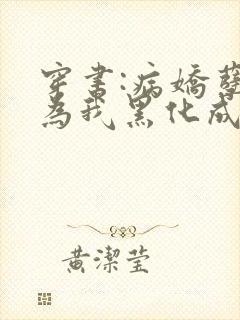 穿書:病嬌
為我黑化成
黃潔瑩